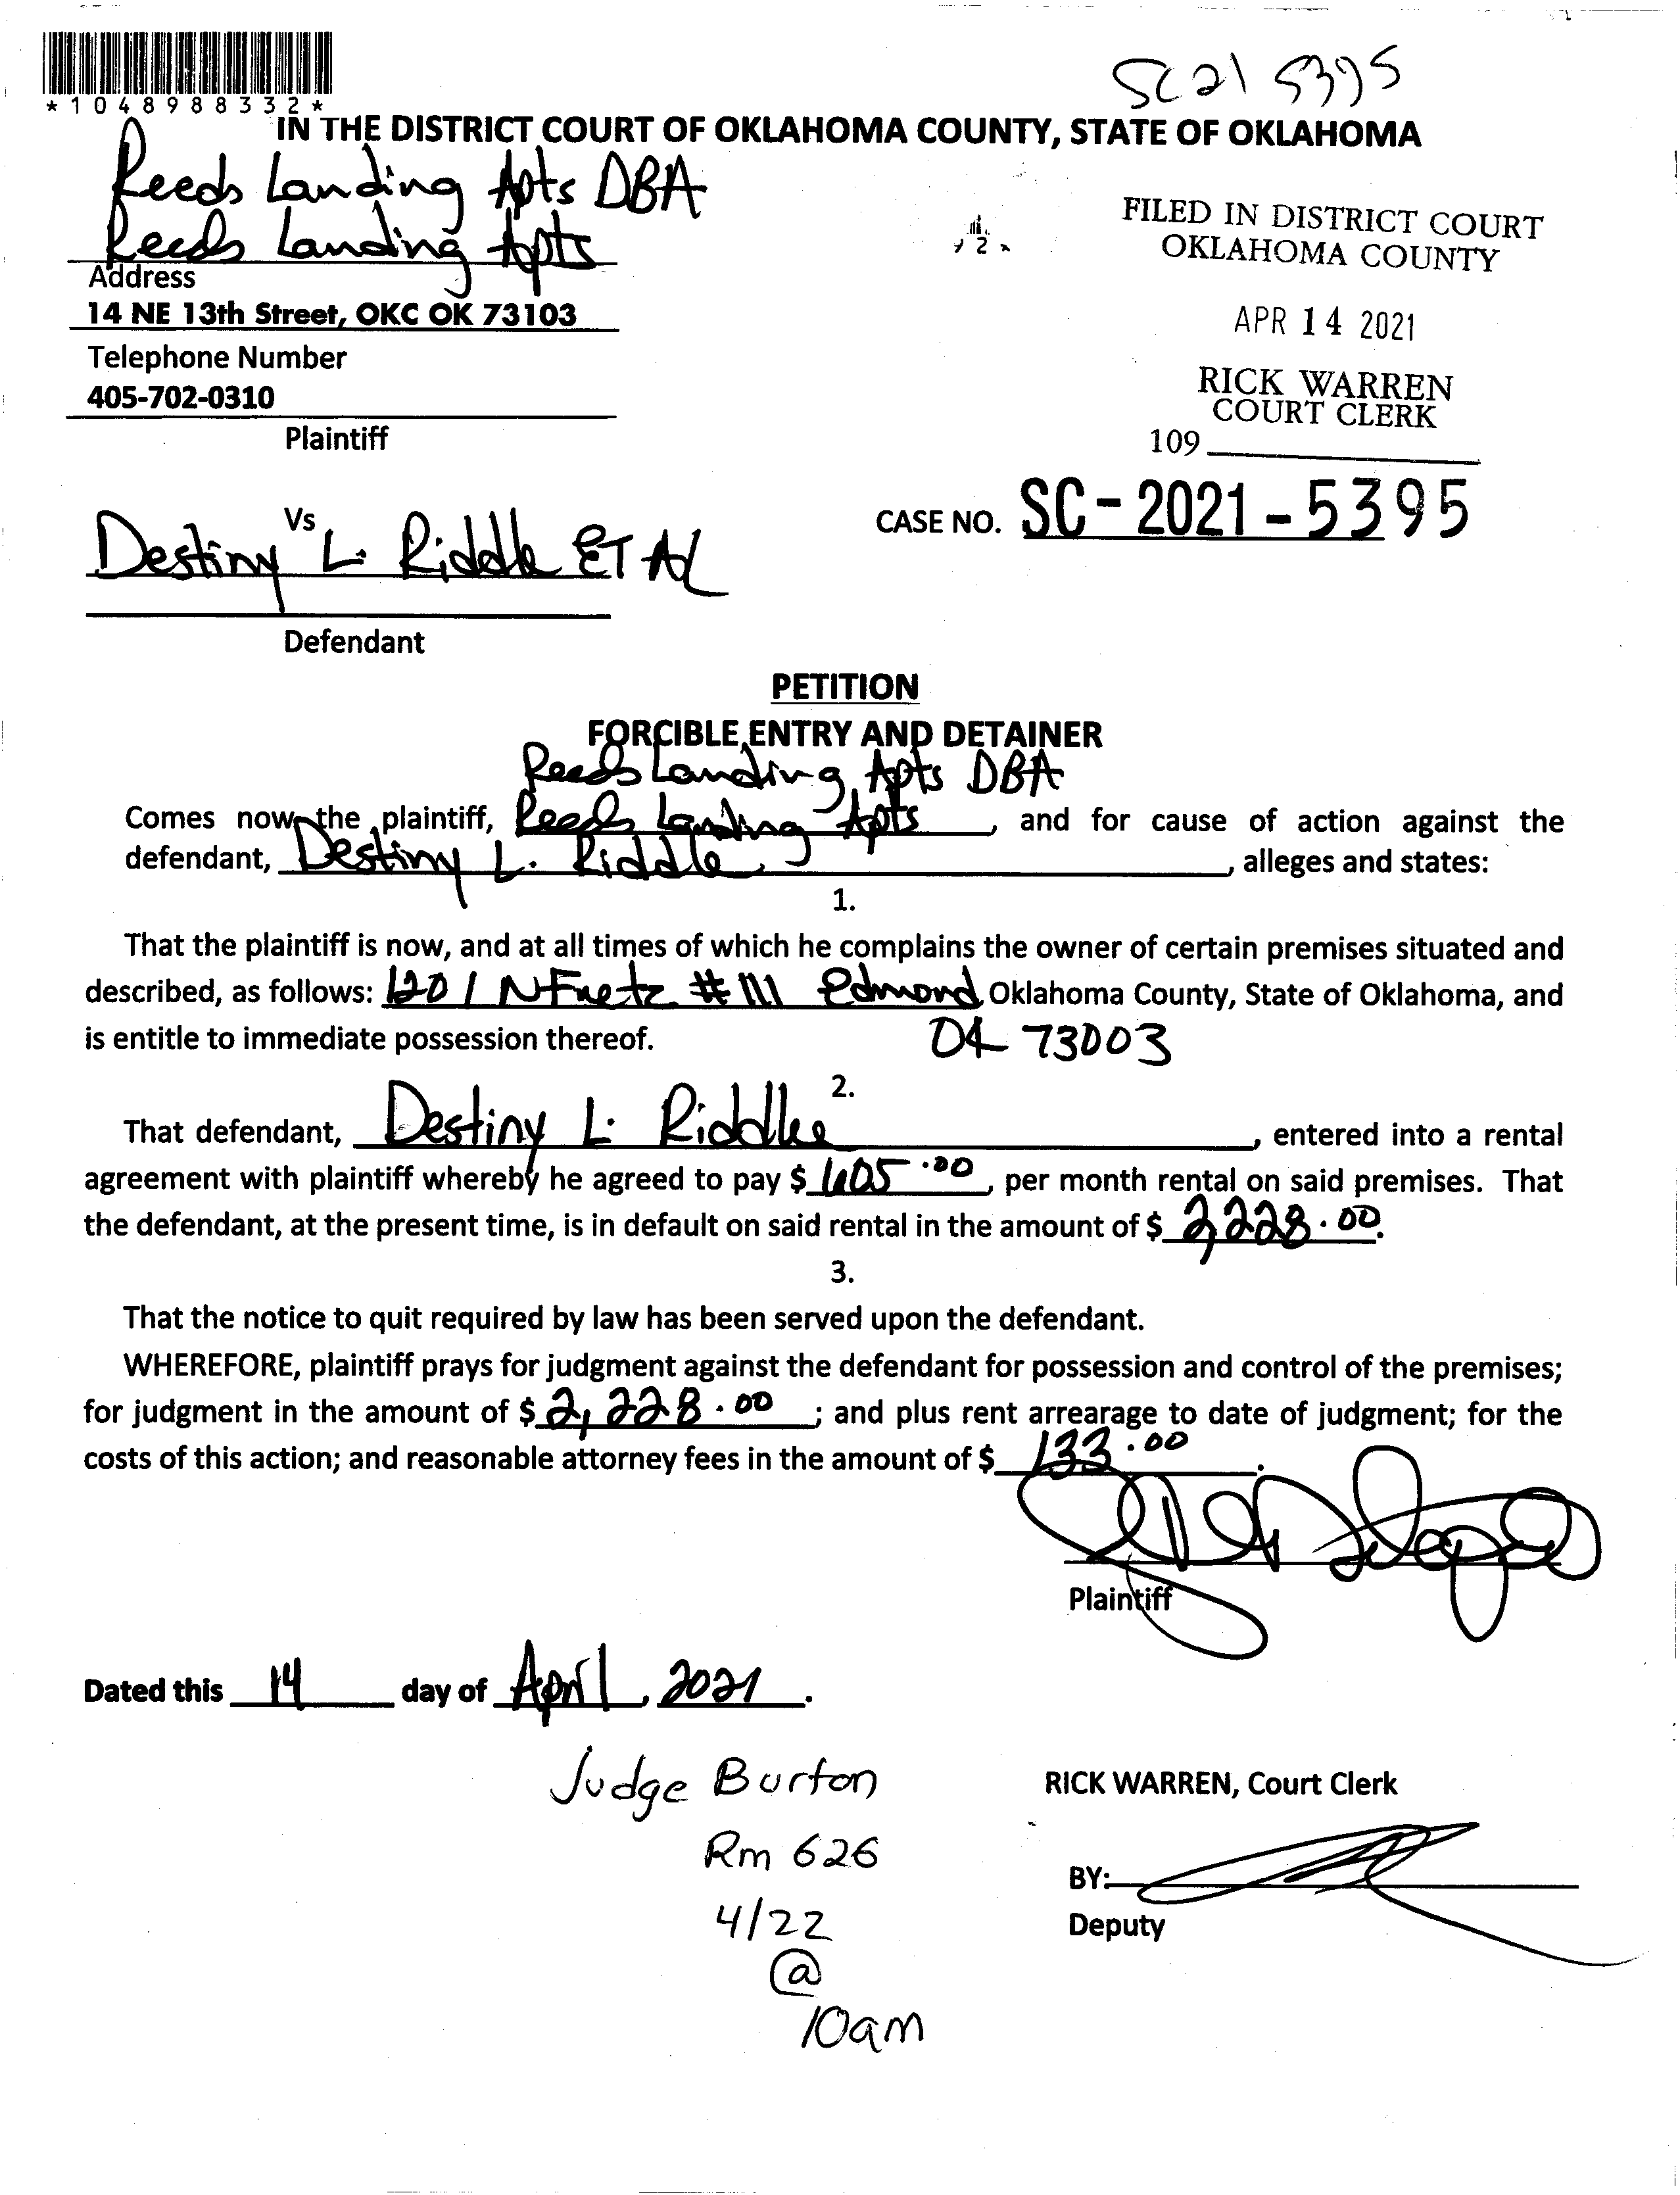 SC21 5395
*1048988332*
IN THE DISTRICT COURT OF OKLAHOMA COUNTY, STATE OF OKLAHOMA
Reeds Landing Apts DBA
Reeds Landing Apts
Address
14 NE 13th Street, OKC OK 73103
Telephone Number
405-702-0310
Plaintiff
FILED IN DISTRICT COURT
OKLAHOMA COUNTY
APR 14 2021
RICK WARREN
COURT CLERK
109
Vs
Destiny L. Riddle ET AL
Defendant
CASE NO. SC-2021-5395
PETITION
FORCIBLE ENTRY AND DETAINER
Reeds Landing Apts DBA
Comes now the plaintiff, Reeds Landing Apts, and for cause of action against the
defendant, Destiny L. Riddle, alleges and states:
1.
That the plaintiff is now, and at all times of which he complains the owner of certain premises situated and
described, as follows: 1201 N Fretz #111 Edmond Oklahoma County, State of Oklahoma, and
is entitle to immediate possession thereof. OK 73003
2.
That defendant, Destiny L. Riddle, entered into a rental
agreement with plaintiff whereby he agreed to pay $ 605.00, per month rental on said premises. That
the defendant, at the present time, is in default on said rental in the amount of $ 2,228.00.
3.
That the notice to quit required by law has been served upon the defendant.
WHEREFORE, plaintiff prays for judgment against the defendant for possession and control of the premises;
for judgment in the amount of $ 2,228.00; and plus rent arrearage to date of judgment; for the
costs of this action; and reasonable attorney fees in the amount of $ 133.00.
Plaintiff
Dated this 14 day of April, 2021.
Judge Burton
Rm 626
4/22
@
10am
RICK WARREN, Court Clerk
BY:
Deputy